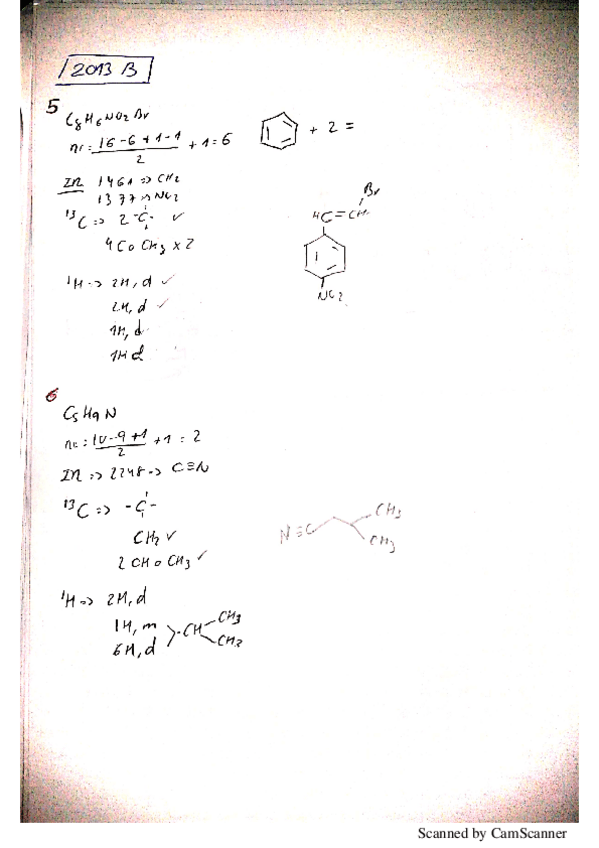 2013 B
5
C8H6NO2Br
nc = 16-6+1-1 / 2 + 1 = 6
+ 2 =
IR 1461 => CH2
1377 => NO2
13C => 2 -C- ✓
4 C o CH3 x 2
Br
HC=CH
NO2
1H => 2H, d ✓
2H, d ✓
1H, d
1H d
6
C5H9N
nc = 10-9+1 / 2 + 1 = 2
IR => 2248 -> C≡N
13C => -C-
CH2 ✓
2 CH o CH3 ✓
N≡C
CH3
CH3
1H => 2H, d
1H, m
6H, d
CH
CH3
CH3
Scanned by CamScanner